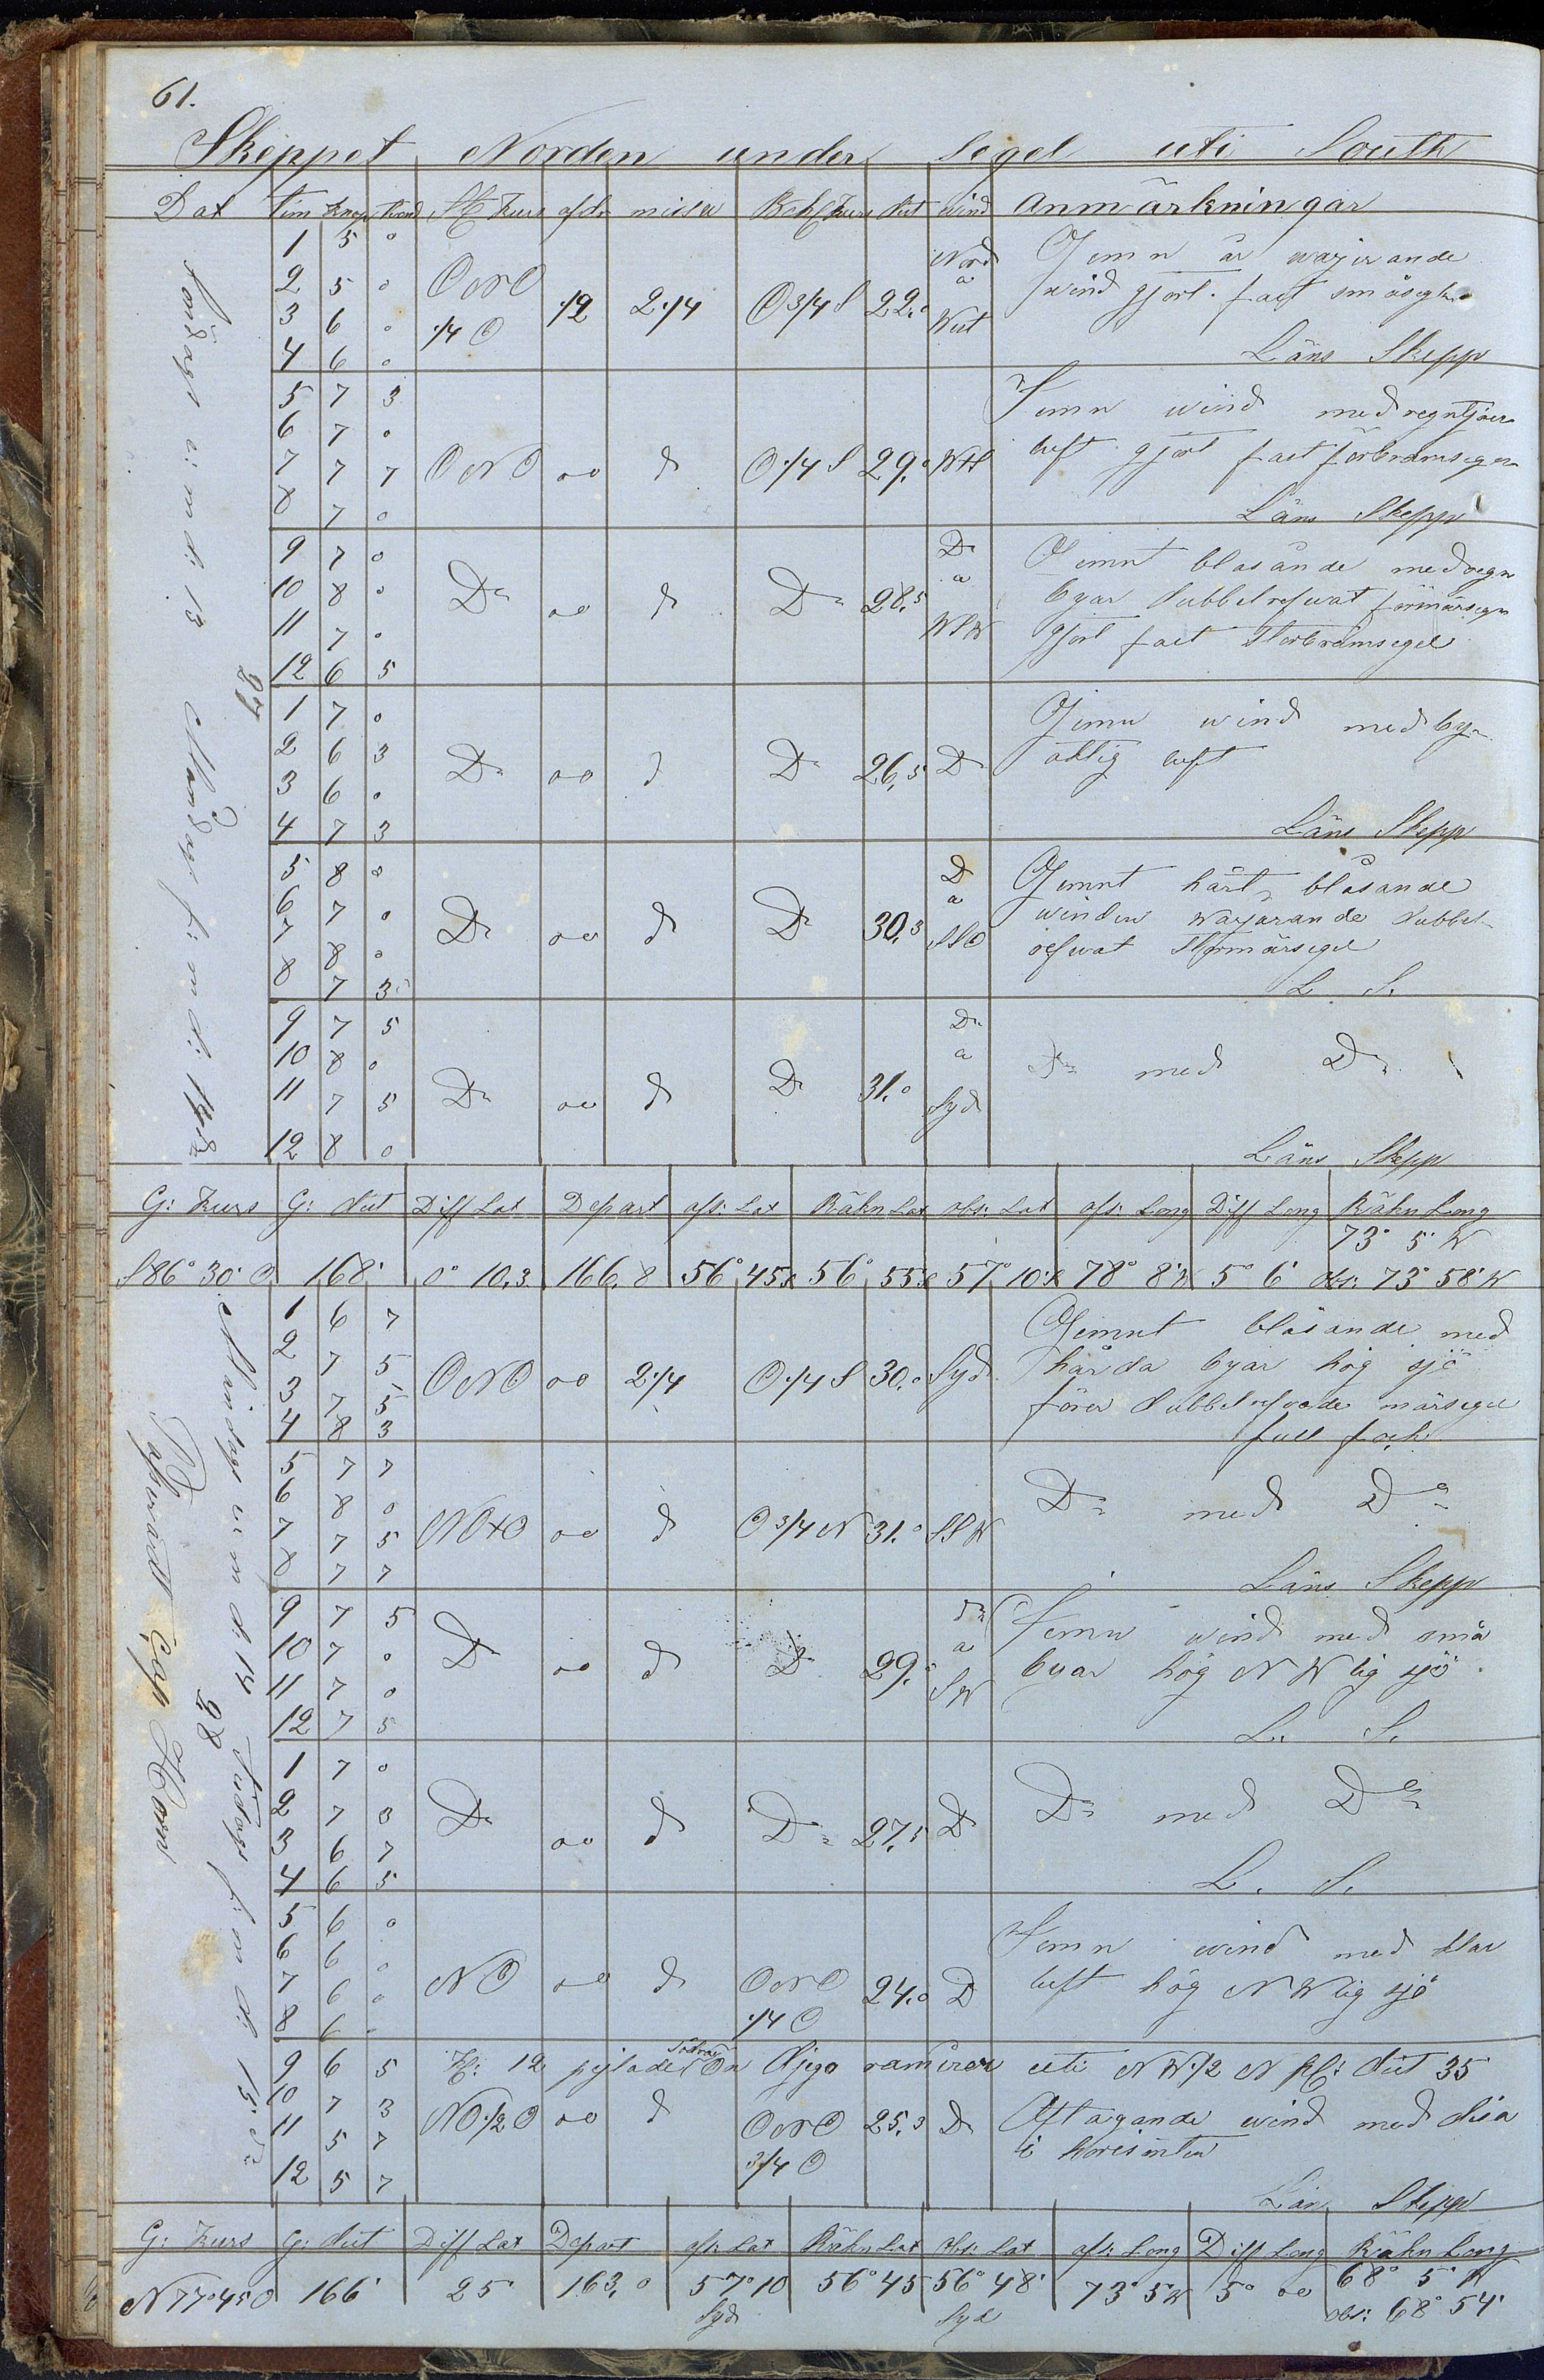 61.
Skeppet Norden under Segel uti South
Dat Tim Knop St Kurs afdr missv Beh Kurs dist wind Anmärkningar
1 5 0
2 5 0
3 6 0
4 6 0
ONO 1/4 O 1/2 2 1/4 O 3/4 S 22.0 Nord a West
Jemn wind gjort fast
Läns Skepp
5 7 3
6 7 0
7 7 7
8 7 0
ONO 00 d O 1/4 S 29.0
Jemn wind med
luft gjort fast förbramsegel
Läns Skepp
9 7 0
10 8 0
11 7 0
12 6 5
Do 00 d Do 28.5 Do a WSW
Jemnt blåsande med regn
byar dubbelrefwat förmärsegel
gjort fast Storbramsegel
Söndags e: m d: 13
27
Måndags f: m d: 14de
1 7 0
2 6 3
3 6 0
4 7 3
Do 00 d Do 26.5 Do
Jemn wind med by-
aktig luft
Läns Skepp
5 8 0
6 7 0
7 8 0
8 7 3
Do 00 d Do 30.3 Do a SSO
Jemnt hårt blåsande
winden dubbel-
refwat Stormärsegel
L. S.
9 7 5
10 8 0
11 7 5
12 8 0
Do 00 d Do 31.0 Do a Syd
Do med Do
Läns Skepp
G: Kurs G: dist Diff Lat Depart afs: Lat Räkn Lat obs: Lat afs: Long Diff Long Räkn Long
73° 5' W
S 86° 30' O 168' 0° 10,3 166,8 56° 45,8 56° 55,8 57° 10,8 78° 8' W 5° 6' obs: 73° 58' W
1 6 7
2 7 5
3 7 5
4 8 3
ONO 00 2 1/4 O 1/4 S 30.0 Syd
Jemnt blåsande med
hårda byar hög sjö
förer dubbelrefwade märsegel
full fock
5 7 7
6 8 0
7 7 5
8 7 7
NOtO 00 d O 3/4 N 31.0 SSW
Do med Do
Läns Skepp
9 7 5
10 7 0
11 7 0
12 7 5
Do 00 d Do 29.0 Do a SW
Jemn wind med små
byar hög NW lig sjö
L. S.
Måndags e: m d: 14
28
Tisdags f: m d: 15de
Cap Horn
1 7 0
2 7 3
3 6 7
4 6 5
Do 00 d Do 27.5 Do
Do med Do
L. S.
5 6 0
6 6 0
7 6 0
8 6 0
NO 00 d ONO 1/4 O 24.0 Do
Jemn wind med klar
luft hög NW lig sjö
9 6 5
10 7 3
11 5 7
12 5 7
Kl: 12 pejlades Södra Ön Djego ramirez uti NW 1/2 N dist 35'
NO 1/2 O 00 d ONO 3/4 O 25.3 Do
Aftagande wind med disa
i horisonten
Läns Skepp
G: Kurs G: dist Diff Lat Depart afs: Lat Räkn Lat obs: Lat afs: Long Diff Long Räkn Long
N 77° 45' O 166' 25' 163,0 57° 10 Syd 56° 45 56° 48' Syd 73° 5' W 5° 00 68° 5' W
obs: 68° 54'